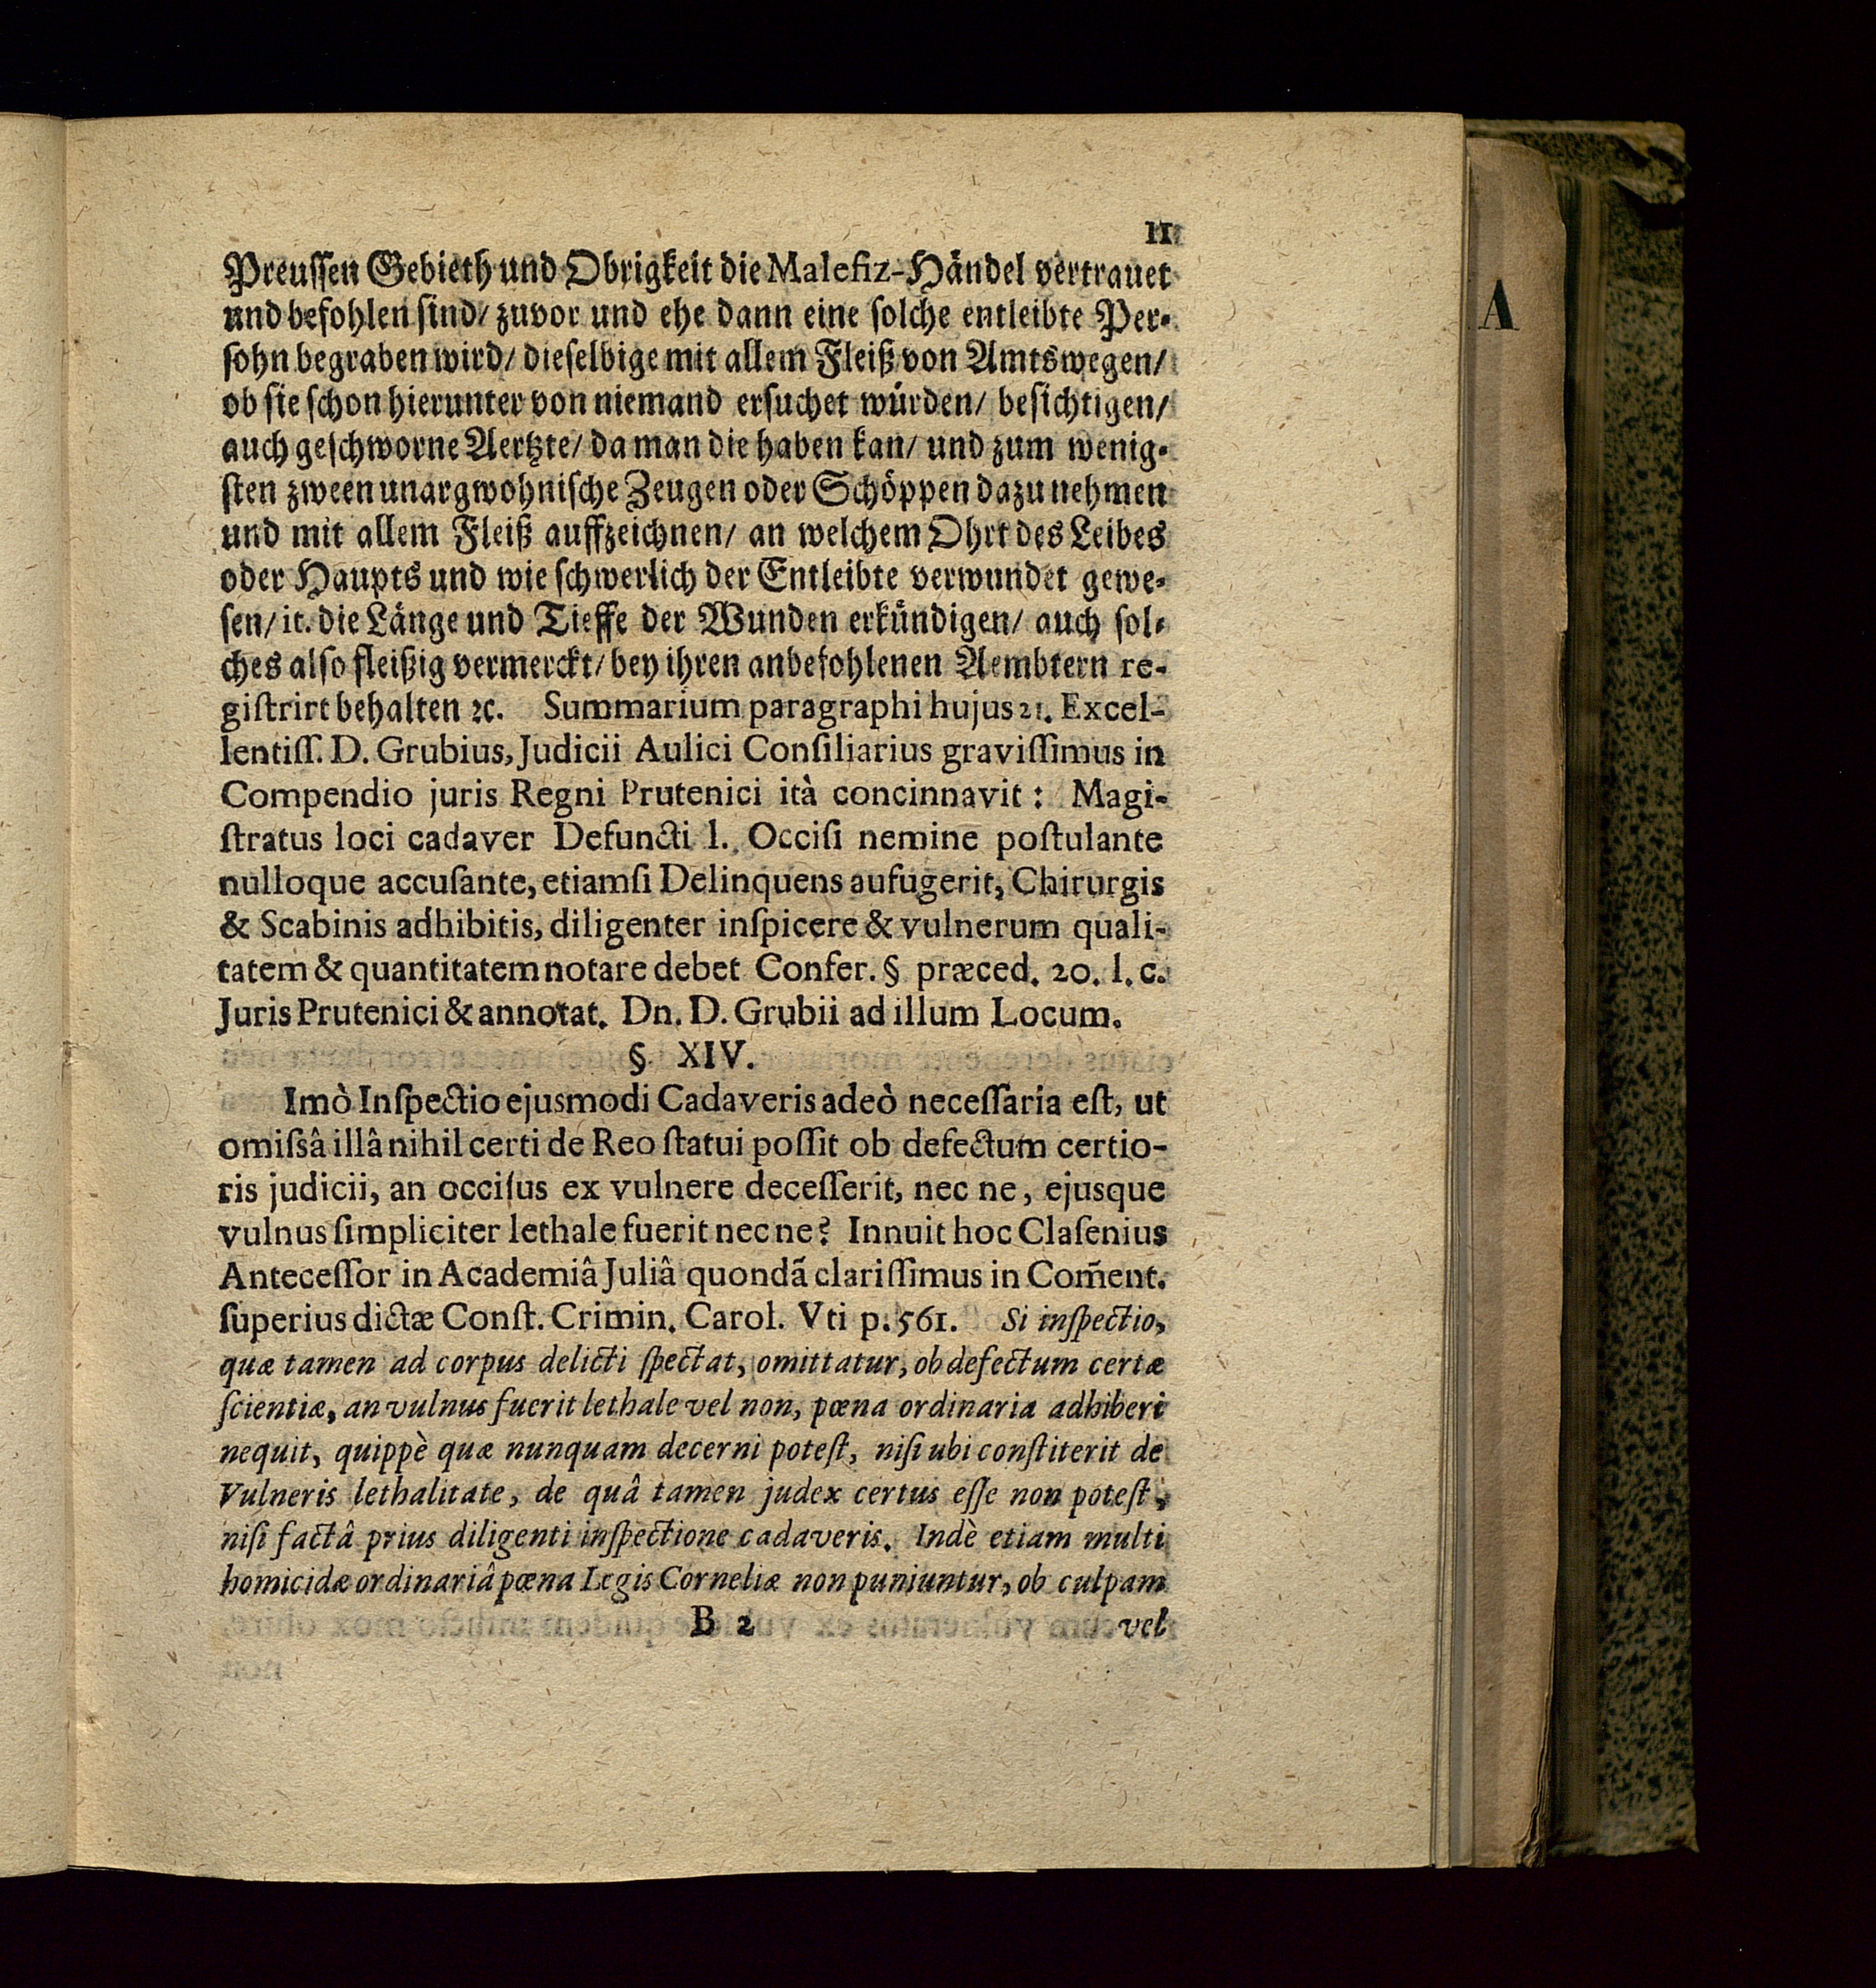 11
Preuſſen Gebieth und Obrigkeit die Malefiz-Händel vertrauet
und befohlen ſind/ zuvor und ehe dann eine ſolche entleibte Per-
ſohn begraben wird/ dieſelbige mit allem Fleiß von Amtswegen/
ob ſie ſchon hierunter von niemand erſuchet würden/ beſichtigen/
auch geſchworne Aertzte/ da man die haben kan/ und zum wenig-
ſten zween unargwohniſche Zeugen oder Schöppen dazu nehmen
und mit allem Fleiß auffzeichnen/ an welchem Ohrt des Leibes
oder Haupts und wie ſchwerlich der Entleibte verwundet gewe-
ſen/ it. die Länge und Tieffe der Wunden erkündigen/ auch ſol-
ches alſo fleißig vermerckt/ bey ihren anbefohlenen Aembtern re-
giſtrirt behalten ꝛc. Summarium paragraphi hujus 21. Excel-
lentiſſ. D. Grubius, Judicii Aulici Conſiliarius graviſſimus in
Compendio juris Regni Prutenici ità concinnavit: Magi-
ſtratus loci cadaver Defuncti l. Occiſi nemine poſtulante
nulloque accuſante, etiamſi Delinquens aufugerit, Chirurgis
& Scabinis adhibitis, diligenter inſpicere & vulnerum quali-
tatem & quantitatem notare debet Confer. § præced. 20. l. c.
Juris Prutenici & annotat. Dn. D. Grubii ad illum Locum.
§. XIV.
Imò Inſpectio ejusmodi Cadaveris adeò neceſſaria eſt, ut
omiſsâ illâ nihil certi de Reo ſtatui poſſit ob defectum certio-
ris judicii, an occiſus ex vulnere deceſſerit, nec ne, ejusque
vulnus ſimpliciter lethale fuerit nec ne? Innuit hoc Claſenius
Anteceſſor in Academiâ Juliâ quondã clariſſimus in Com̃ent.
ſuperius dictæ Conſt. Crimin. Carol. Vti p. 561. Si inſpectio,
quæ tamen ad corpus delicti ſpectat, omittatur, ob defectum certæ
ſcientiæ, an vulnus fuerit lethale vel non, pœna ordinaria adhiberi
nequit, quippè quæ nunquam decerni poteſt, niſi ubi conſtiterit de
Vulneris lethalitate, de quâ tamen judex certus eſſe non poteſt,
niſi factâ prius diligenti inſpectione cadaveris. Indè etiam multi
homicidæ ordinariâ pœna Legis Corneliæ non puniuntur, ob culpam
B 2 vel
A